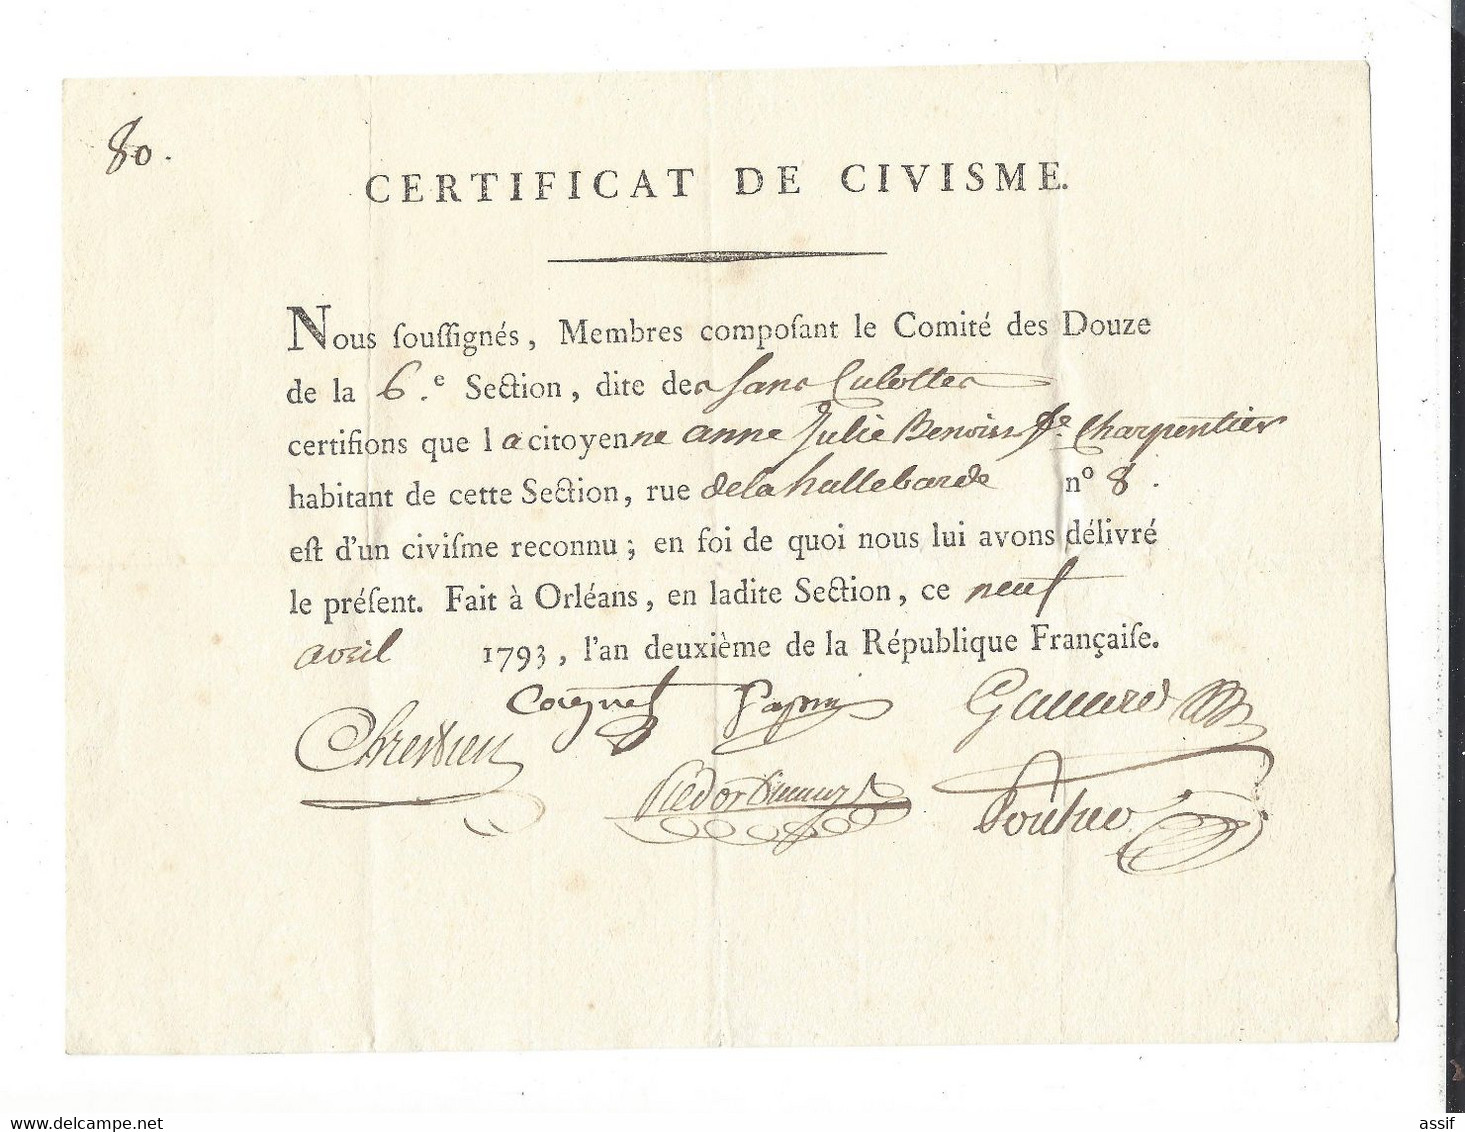 80.
CERTIFICAT DE CIVISME.
Nous souſſignés, Membres compoſant le Comité des Douze
de la 6.e Section, dite des sans Culottes
certifions que la citoyenne anne Julie Benoist fe. Charpentier
habitant de cette Section, rue de la hallebarde n° 8.
est d'un civiſme reconnu; en foi de quoi nous lui avons délivré
le préſent. Fait à Orléans, en ladite Section, ce neuf
avril 1793, l'an deuxième de la République Françaiſe.
Coignet
Chrestien
www.delcampe.net
assif